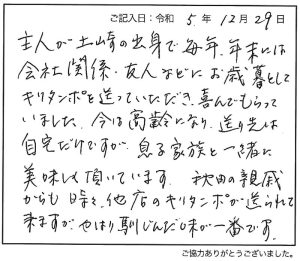 ご記入日：令和 5年 12月 29日
主人が土崎の出身で毎年、年末には
会社関係・友人などにお歳暮として
キリタンポを送っていただき、喜んでもらって
いました。今は高齢になり、送り先は
自宅だけですが、息子家族と一緒に
美味しく頂いています。秋田の親戚
からも時々、他店のキリタンポが送られて
来ますが、やはり馴じんだ味が一番です。
ご協力ありがとうございました。